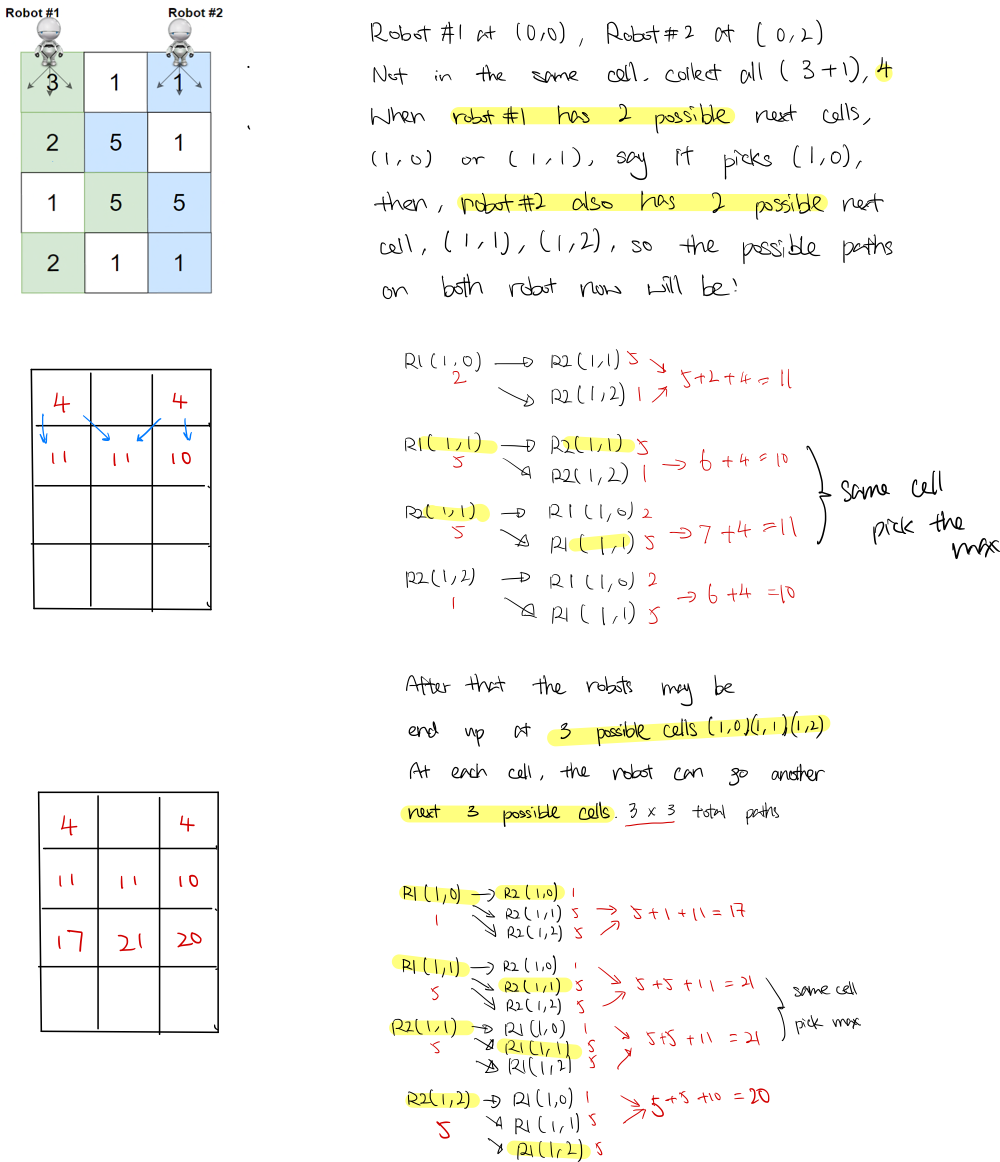 Robot #1
Robot #2
3 1 1
2 5 1
1 5 5
2 1 1
Robot #1 at (0,0), Robot #2 at (0,2)
Not in the same cell. collect all (3+1), 4
When robot #1 has 2 possible next cells,
(1,0) or (1,1), say it picks (1,0),
then, robot #2 also has 2 possible next
cell, (1,1), (1,2), so the possible paths
on both robot now will be:
4 4
11 11 10
R1(1,0) → R2(1,1) 5
2
→ R2(1,2) 1
5+2+4=11
R1(1,1) → R2(1,1) 5
5
→ R2(1,2) 1 → 6+4=10
R2(1,1) → R1(1,0) 2
5
→ R1(1,1) 5 → 7+4=11
same cell
pick the
max
R2(1,2) → R1(1,0) 2
1
→ R1(1,1) 5
→ 6+4=10
After that the robots may be
end up at 3 possible cells (1,0)(1,1)(1,2)
At each cell, the robot can go another
next 3 possible cells. 3 x 3 total paths
4 4
11 11 10
17 21 20
R1(1,0) → R2(1,0) 1
1
→ R2(1,1) 5 → 5+1+11=17
→ R2(1,2) 5
R1(1,1) → R2(1,0) 1
5
→ R2(1,1) 5 → 5+5+11=21
→ R2(1,2) 5
R2(1,1) → R1(1,0) 1
5
→ R1(1,1) 5 → 5+5+11=21
→ R1(1,2) 5
same cell
pick max
R2(1,2) → R1(1,0) 1
5
→ R1(1,1) 5 → 5+5+10=20
→ R1(1,2) 5